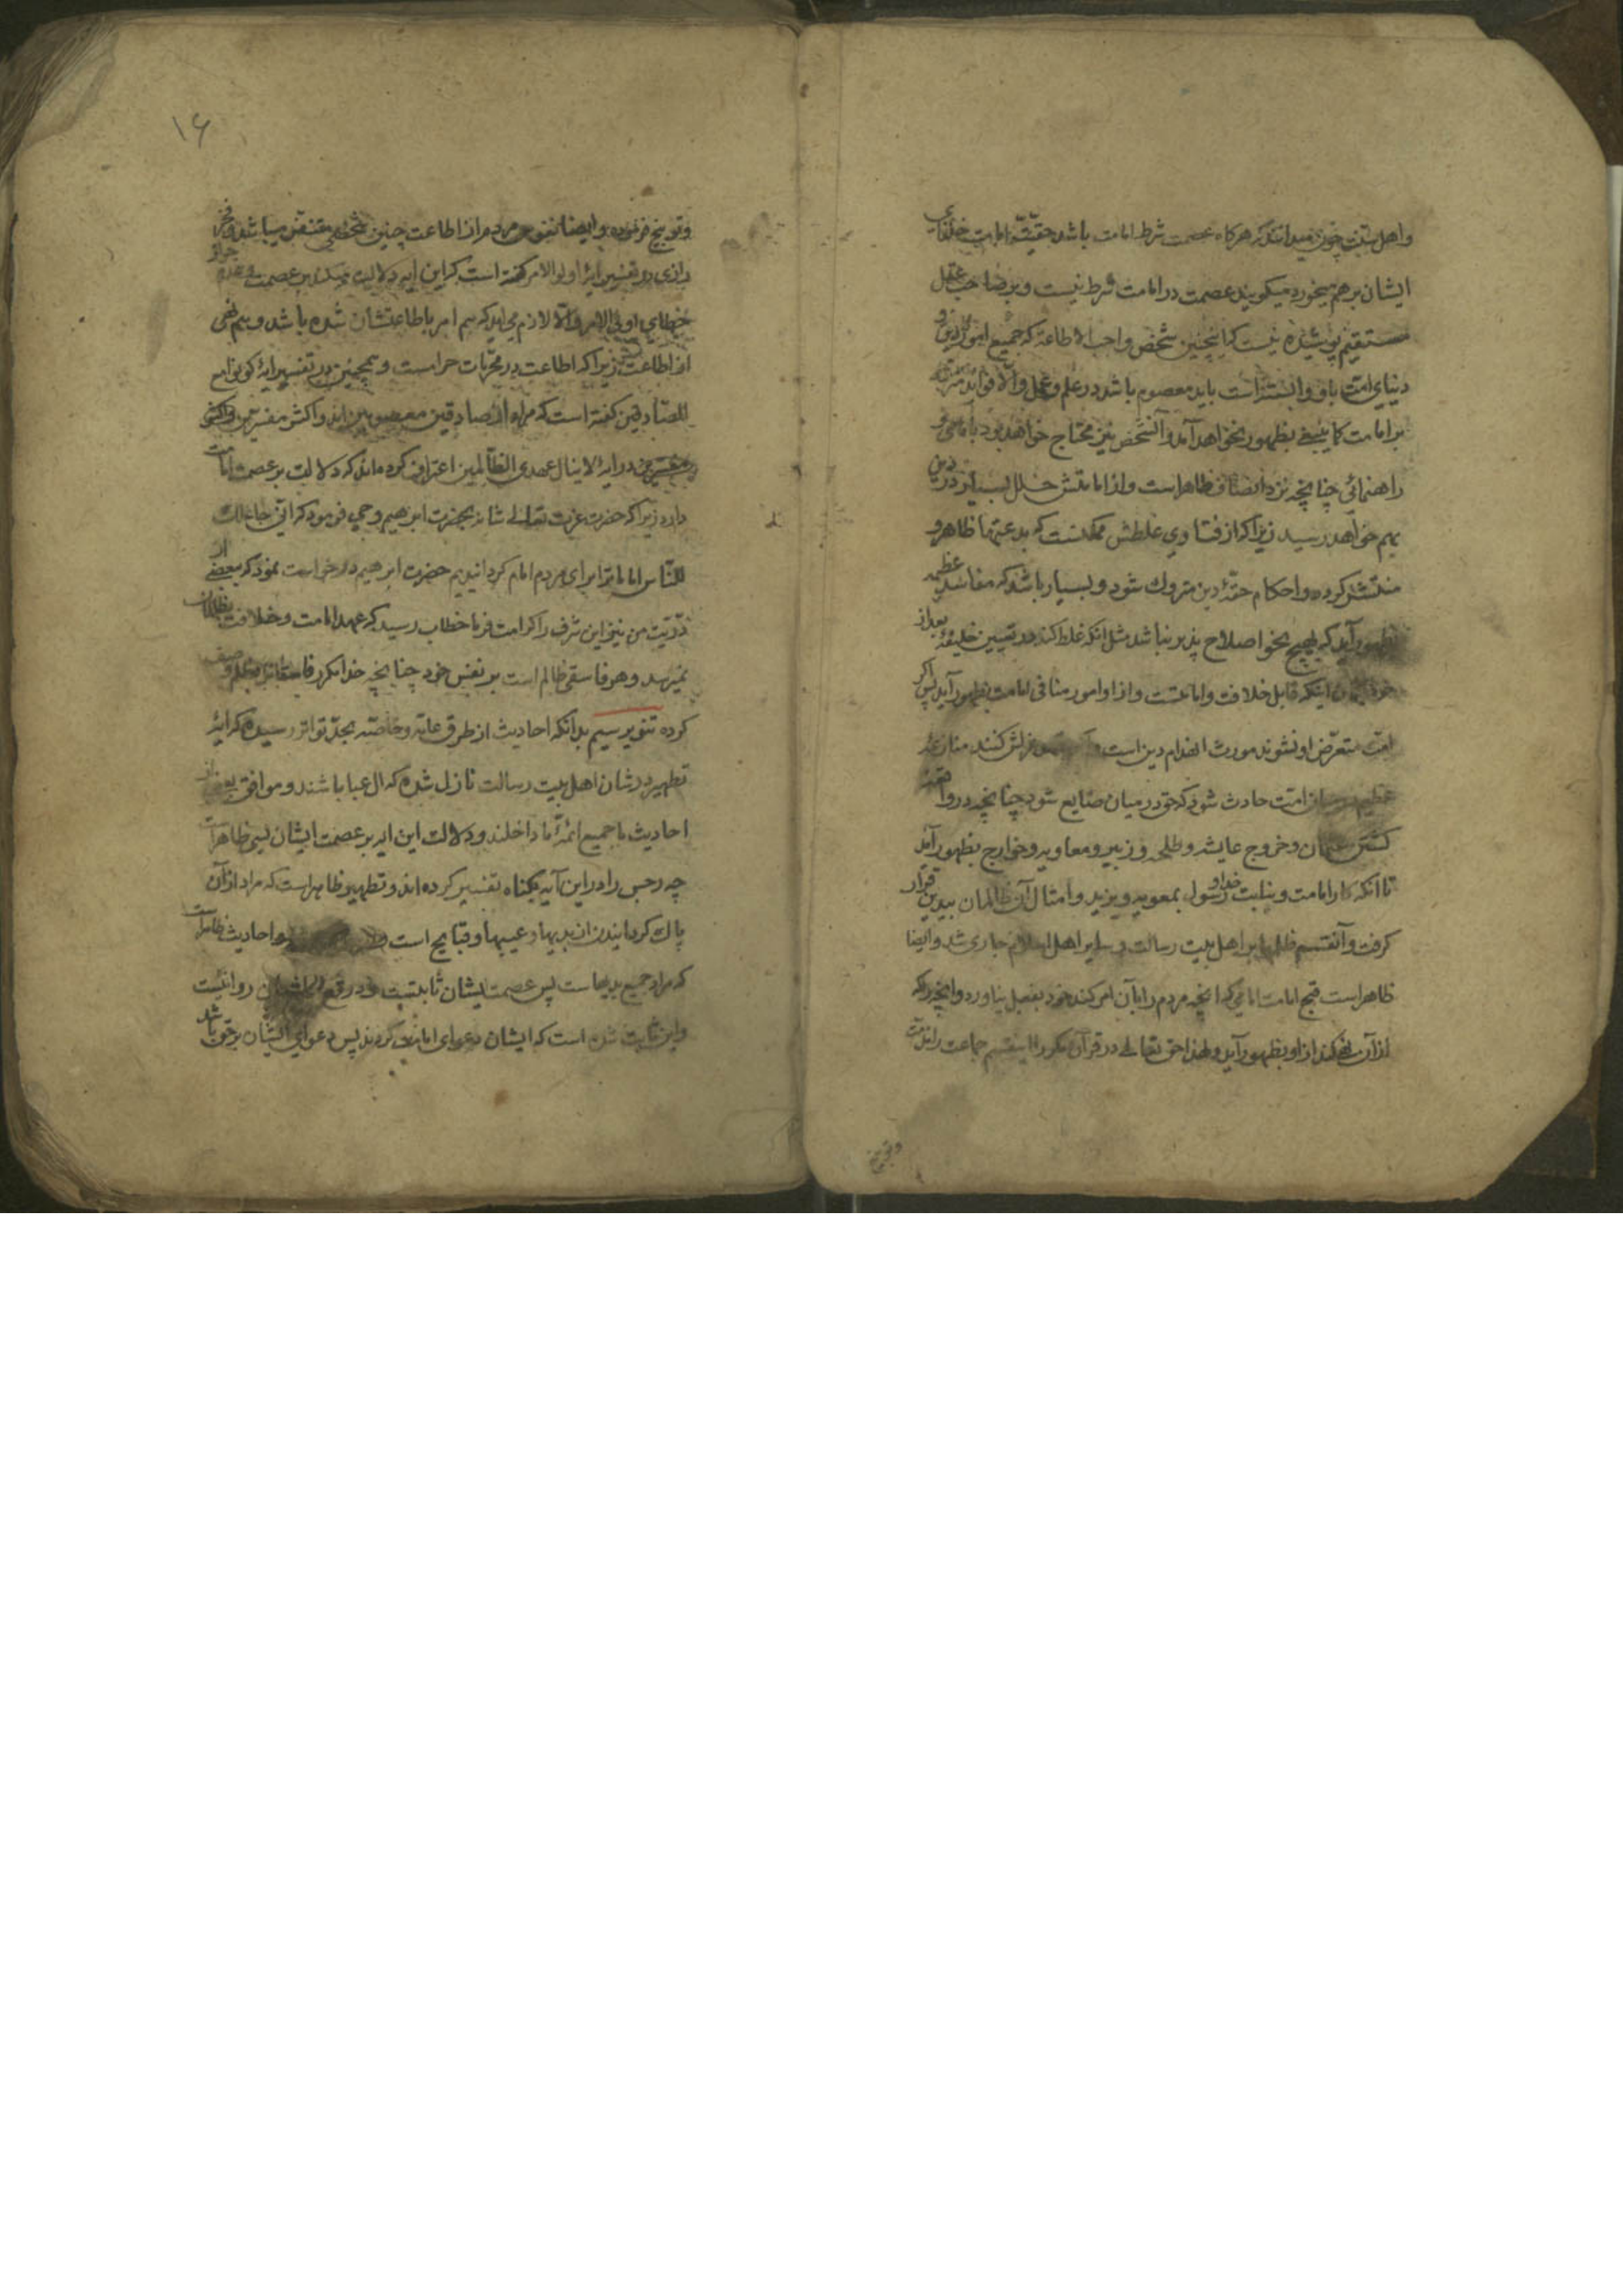 واهل سنت چون میدانند که هرکاه عصمت شرط امامت باشد حقیّة امامت خلفای
ایشان برهم میخورد میکویند عصمت در امامت شرط نیست و بر صاحب عقل
مستقیم پوشیده نیست که اینچنین شخص واجب الاطاعة که جمیع امور دین و
دنیای امت باو وابسته است باید معصوم باشد در علم و عمل والا فواید
بر امامت کاینبغی بظهور نخواهد آمد و آنشخص نیز محتاج خواهد بود بامامی و
راهنمائی چنانچه نزد انصاف ظاهر است و از امامتش خلل بسیار در دین
بهم خواهد رسید زیرا که از فتاوی غلطش ممکنست که بدعتها ظاهر و
منتشر کردد و احکام حقهٔ دین متروک شود و بسیار باشد که مفاسد عظیمه
بظهور آید که بهیچ نحو اصلاح پذیر نباشد مثل انکه غلط کند در تعیین خلیفهٔ بعد از
خود بکمان اینکه قابل خلافت و امامتست و از او امور منافی امامت بظهور آید پس اکر
امت متعرّض او نشوند مورث انهدام دین است و عزلش کنند منازعهٔ
عظیم در میان امت حادث شود که حق در میان ضایع شود چنانچه در واقعهٔ
کشتن عثمان و خروج عایشه و طلحه و زبیر و معاویه و خوارج بظهور آمد
تا انکه کار امامت و نیابت خدا و رسول بمعویه و یزید و امثال آن ظالمان بیدین قرار
کرفت و آنقسم ظلمها بر اهل بیت رسالت و سایر اهل اسلام جاری شد و ایضا
ظاهر است قبح امامت امامی که انچه مردم را بآن امر کند خود بفعل نیاورد و انچه را که
از آن نهی کند از او بظهور آید و لهذا حق تعالی در قرآن مکرر اینقسم جماعت را مذمت
وتوبیخ
۱۶
وتوبیخ فرموده و ایضا نفوس مردم از اطاعت چنین شخصی متنفر میباشد و فخر
رازی در تفسیر ایهٔ اولوالامر کفته است که این ایه دلالت میکند بر عصمت و عدم جواز
خطای اولی الامر والا لازم می اید که هم امر باطاعتشان شده باشد و هم نهی
از اطاعت زیرا که اطاعت در محرّمات حرامست و همچنین در تفسیر ایهٔ کونوا مع
الصّادقین کفته است که مراد از صادقین معصومین اند و اکثر مفسرین
در ایهٔ لاینال عهدی الظّالمین اعتراف کرده اند که دلالت بر عصمت امامت
دارد زیرا که حضرت عزت تعالی شانه بحضرت ابرهیم وحی فرمود که انّی جاعلک
للنّاس اماما ترا برای مردم امام کردانیدیم حضرت ابرهیم درخواست نمود که بعضی از
ذرّیت من نیز این شرف را کرامت فرما خطاب رسید که عهد امامت و خلافت بظالمان
نمیرسد و هر فاسقی ظالم است بر نفس خود چنانچه خدا مکرر فاسقانرا بظلم وصف
کرده تنویر سیم بدانکه احادیث از طرق عامّه و خاصّه بحدّ تواتر رسیده که ایهٔ
تطهیر در شان اهل بیت رسالت نازل شده که ال عبا باشند و موافق بعضی از
احادیث ما جمیع ائمّهٔ ما داخلند و دلالت این ایه بر عصمت ایشان بسی ظاهر است
چه رجس را در این آیه بکناه تفسیر کرده اند و تطهیر ظاهر است که مراد از آن
پاک کردانیدن از بدیها و عیبها و قبایح است و احادیث ظاهر است
که مراد جمیع بدیهاست پس عصمت ایشان ثابتست و دروغ بر ایشان روا نیست
و این ثابت شده است که ایشان دعوای امامت کردند پس دعوای ایشان بر حق باشد